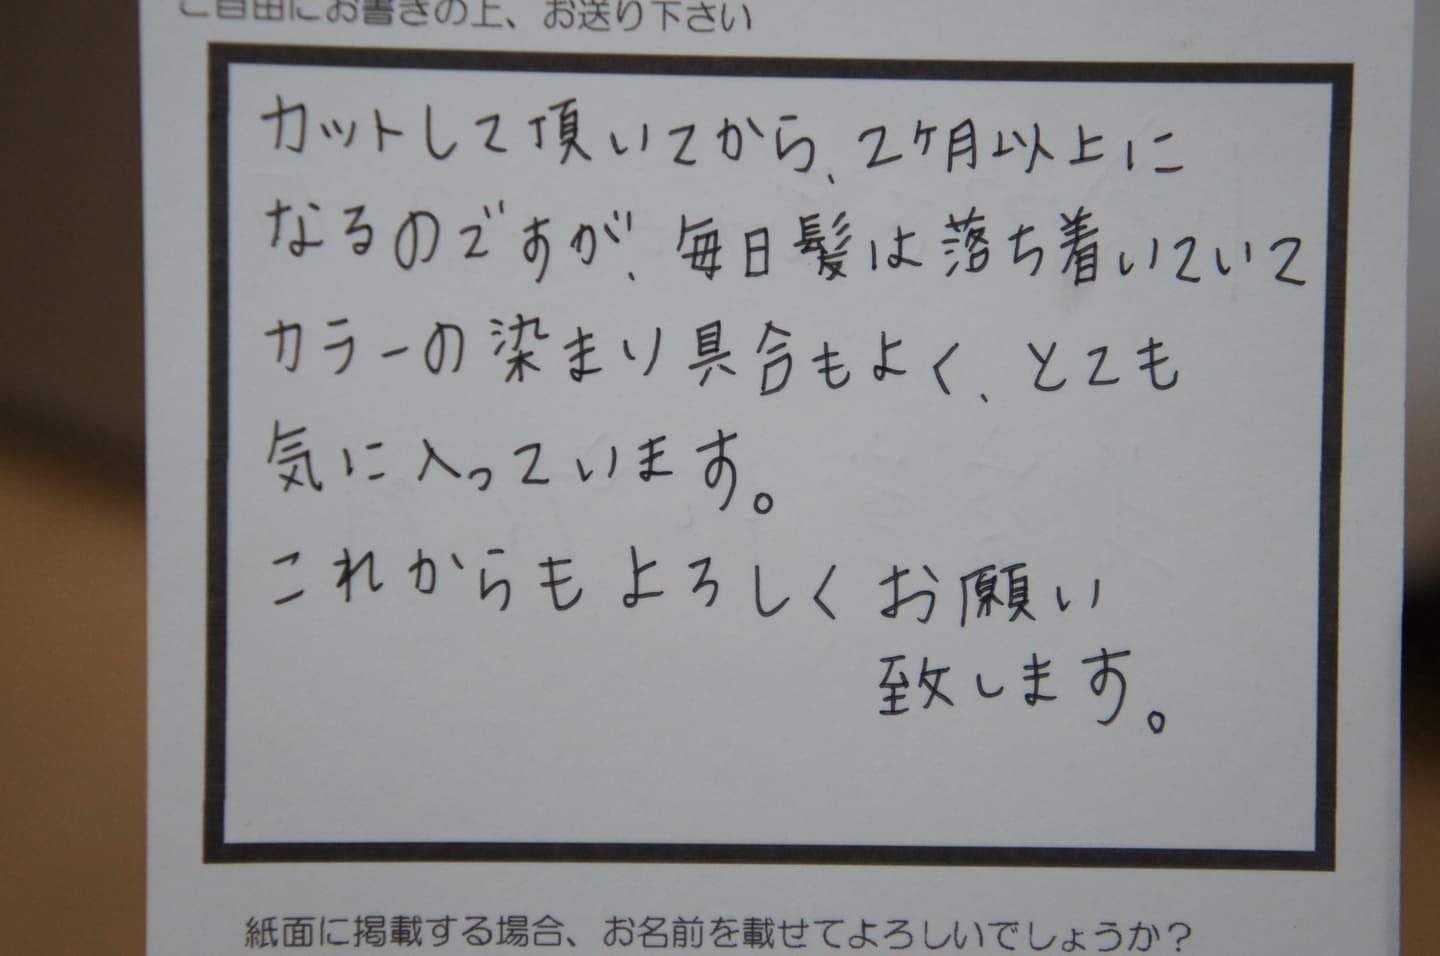 ご自由にお書きの上、お送り下さい
カットして頂いてから、2ケ月以上に
なるのですが、毎日髪は落ち着いていて
カラーの染まり具合もよく、とても
気に入っています。
これからもよろしくお願い
致します。
紙面に掲載する場合、お名前を載せてよろしいでしょうか？